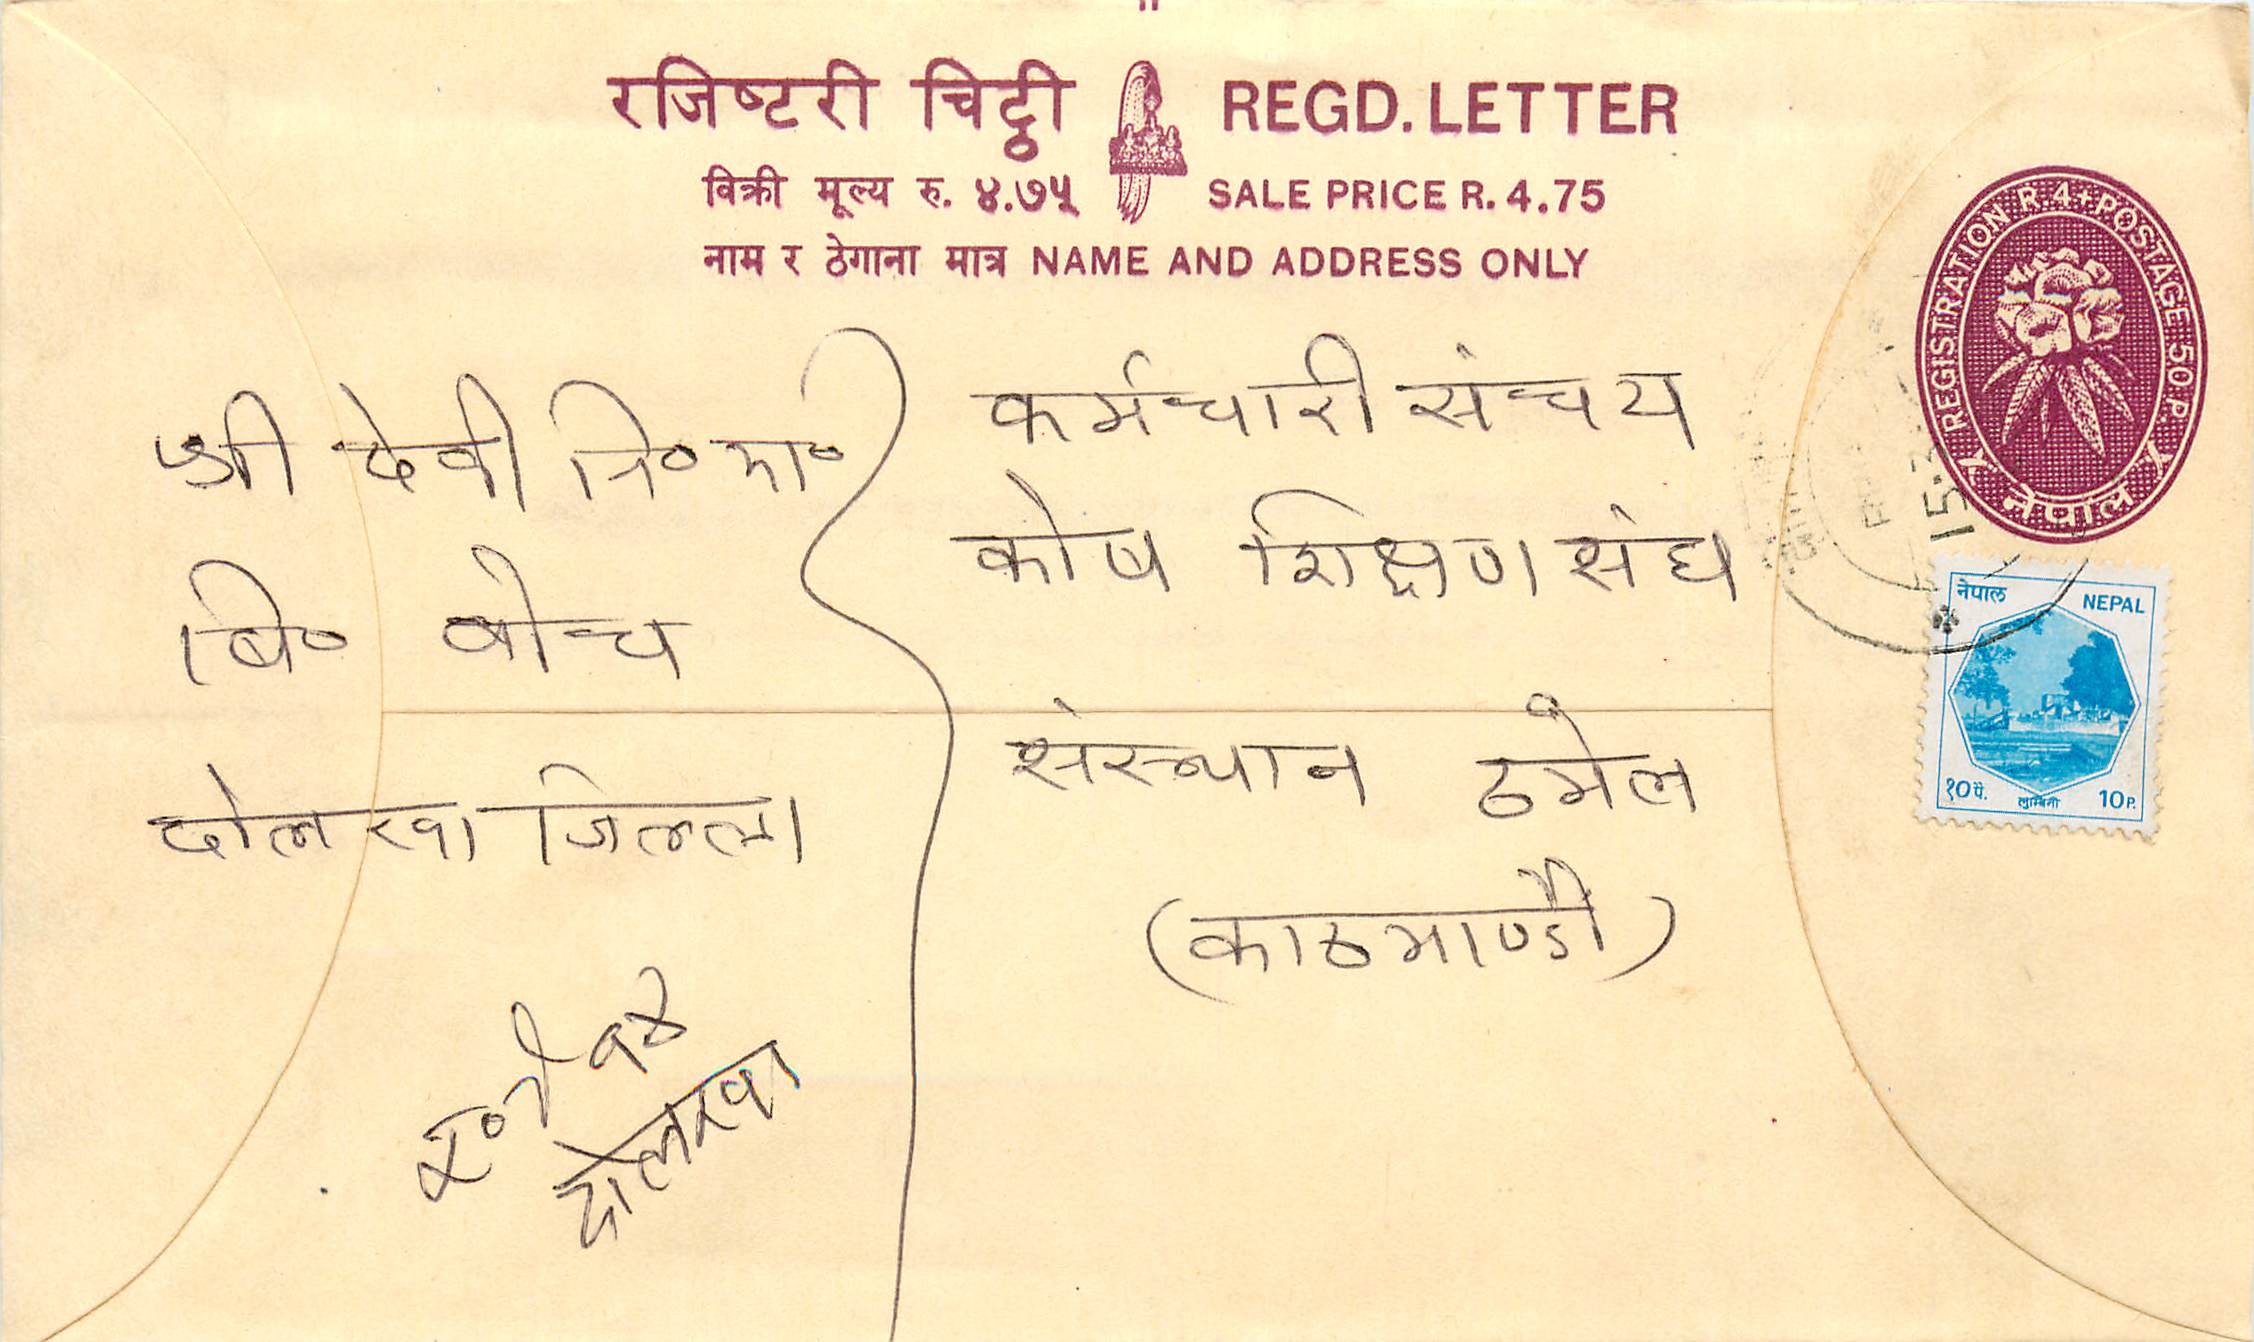 रजिष्टरी चिट्ठी REGD. LETTER
विक्री मूल्य रु. ४.७५ SALE PRICE R. 4.75
नाम र ठेगाना मात्र NAME AND ADDRESS ONLY
REGISTRATION R. 4 + POSTAGE 50 P.
नेपाल
श्री देवी नि० मा०
बि० बोच
दोलखा जिल्ला
कर्मचारी संचय
कोष शिक्षण संघ
संस्थान ठमेल
(काठमाण्डौ)
दोलखा
15.3
नेपाल NEPAL
१० पै. लुम्बिनी 10 P.